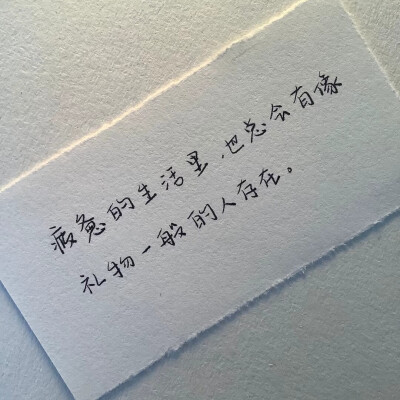 疲惫的生活里,也总会有像
礼物一般的人存在。